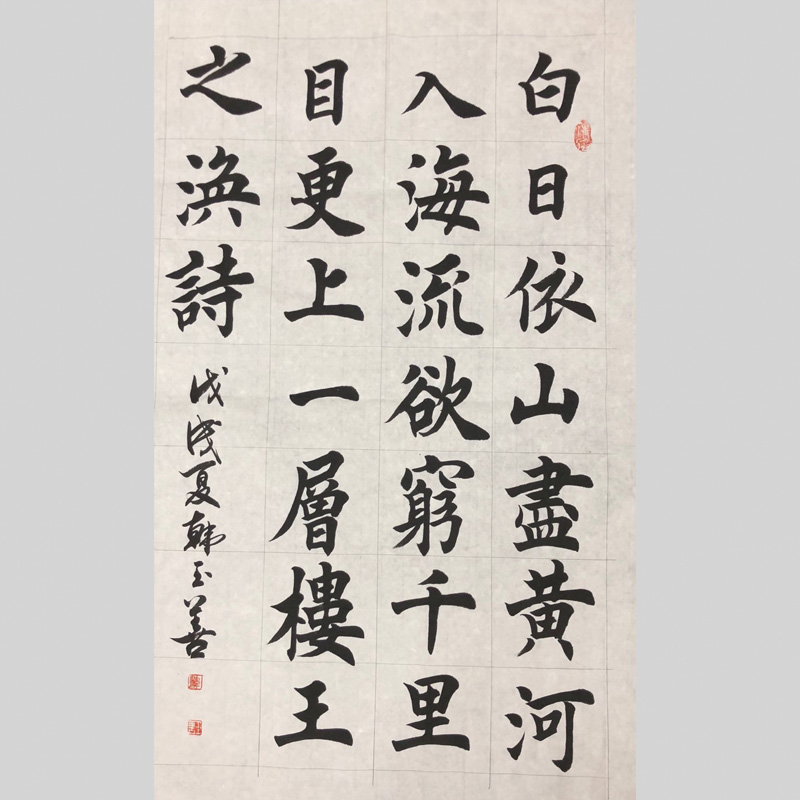 白日依山盡黄河
入海流欲窮千里
目更上一層樓王
之涣詩 戊戌夏韩玉善